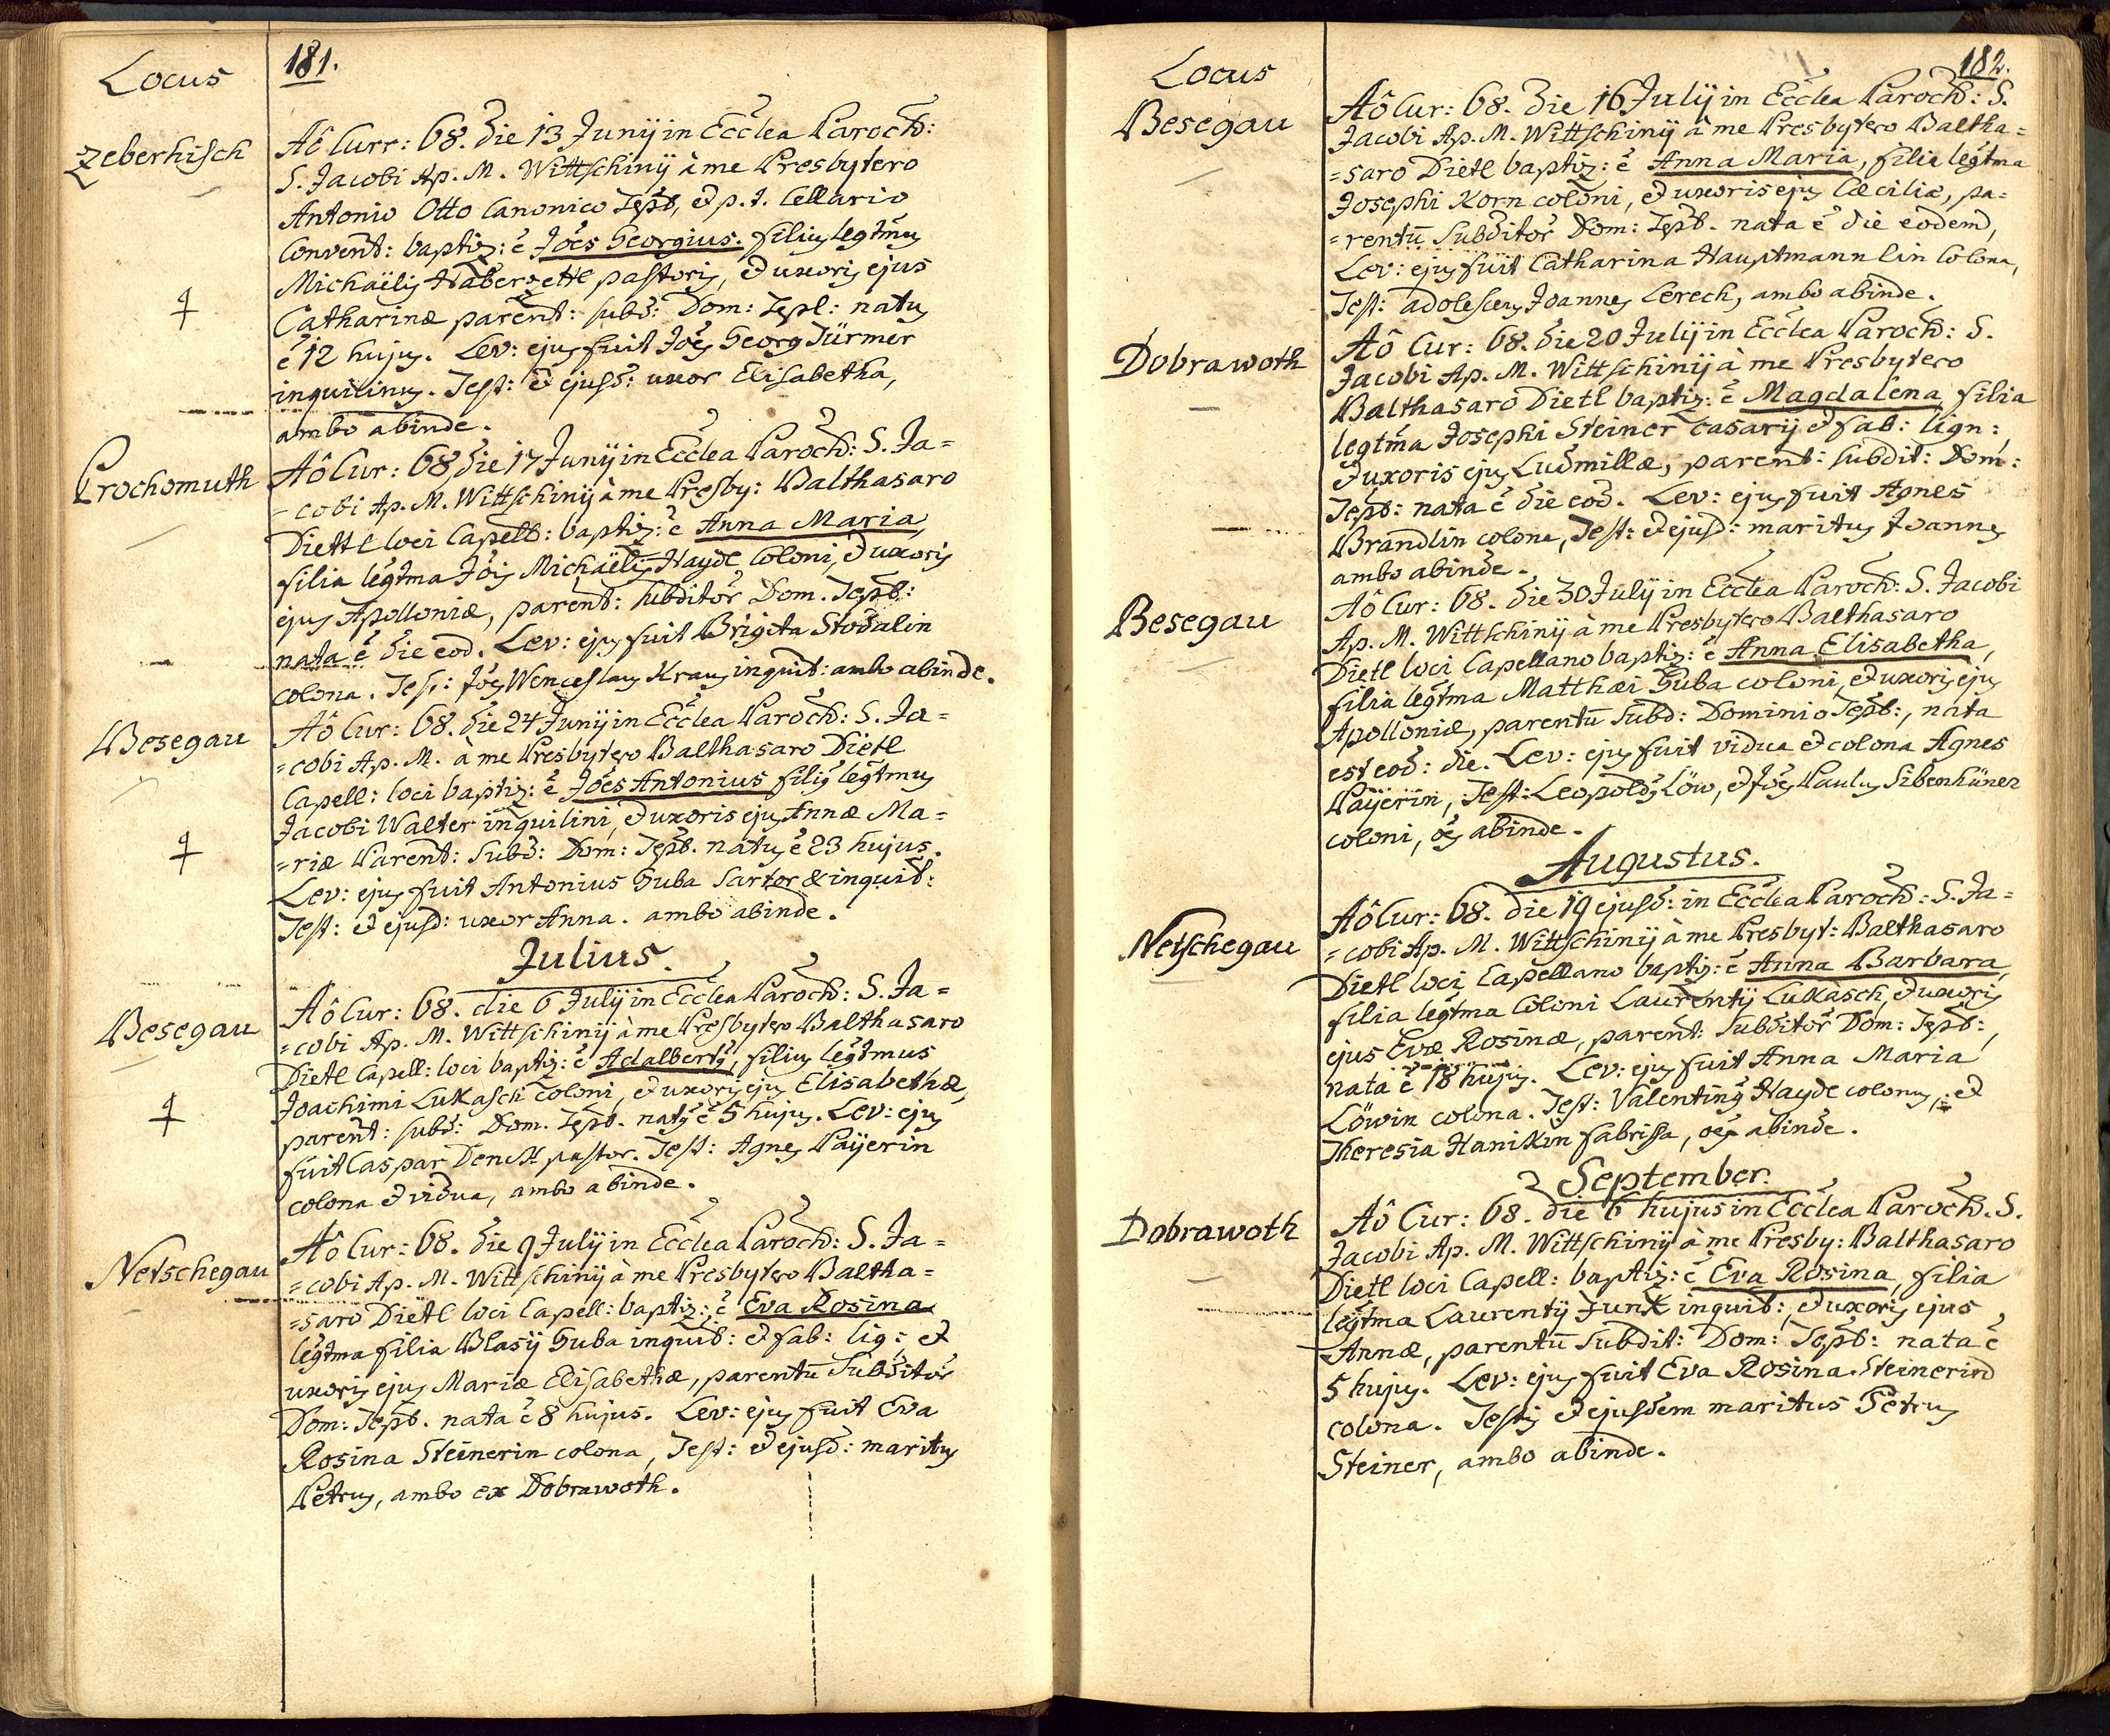 Locus
181.
Zeberhisch
Aô Curr: 68. die 13 Junij in Ecclea Paroch:
S. Jacobi Ap. M. Wittschinij à me Presbytero
Antonio Otto Canonico Tepl, et p. t. Cellario
Convent: baptiz: ē Jões Georgius. filius legtmus
Michaëlis Haberzettl pastoris, et uxoris ejus
Catharinæ parent: subd: Dom: Tepl: natus
ē 12 hujus. Lev: ejus fuit Jões Georg Türmer
inquilinus. Test: et ejusd: uxor Elisabetha,
ambo abinde.
Prochomuth
Aô Cur: 68 die 17 Junij in Ecclea Paroch: S. Ja=
=cobi Ap. M. Wittschinij à me Presby: Balthasaro
Diettl loci Capell: baptiz: ē Anna Maria,
filia legtma Jõis Michaëlis Hayde coloni, et uxoris
ejus Apolloniæ, parent: subditor Dom. Tepl:
nata ē die eod. Lev: ejus fuit Brigita Stodalin
colona. Test: Jões Wenceslaus Kraus inquil: ambo abinde.
Besegau
Aô Cur: 68. die 24 Junij in Ecclea Paroch: S. Ja=
=cobi Ap. M. à me Presbytero Balthasaro Dietl
Capell: loci baptiz: ē Jões Antonius filius legtmus
Jacobi Walter inquilini, et uxoris ejus Annæ Ma=
=riæ Parent: Subd: Dom: Tepl. natus ē 23 hujus.
Lev: ejus fuit Antonius Guba Sartor & inquil:
Test: et ejusd: uxor Anna. ambo abinde.
Julius.
Besegau
Aô Cur: 68. die 6 Julij in Ecclea Paroch: S. Ja=
=cobi Ap. M. Wittschinij à me Presbytero Balthasaro
Dietl Capell: loci baptiz: ē Adalbertus, filius legtmus
Joachimi Lukasch coloni, et uxoris ejus Elisabethæ,
parent: subd: Dom. Tepl. natus ē 5 hujus. Lev: ejus
fuit Caspar Denck pastor. Test: Agnes Paÿerin
colona et vidua, ambo abinde.
Netschegau
Aô Cur: 68. die 9 Julij in Ecclea Paroch: S. Ja=
=cobi Ap. M. Wittschinij à me Presbytero Baltha=
=saro Dietl loci Capell: baptiz: ē Eva Rosina
legtma filia Blasij Guba inquil: et fab: lig: et
uxoris ejus Mariæ Elisabethæ, parentū Subditor
Dom: Tepl. nata ē 8 hujus. Lev: ejus fuit Eva
Rosina Steinerin colona, Test: et ejusd: maritus
Petrus, ambo ex Dobrawoth.
Locus
182.
Besegau
Aô Cur: 68. die 16 Julij in Ecclea Paroch: S.
Jacobi Ap. M. Wittschinij à me Presbytero Baltha=
=saro Dietl baptiz: ē Anna Maria, filia legtma
Josephi Korn coloni, et uxoris ejus Cæciliæ, pa=
=rentū Subditor Dom: Tepl. nata ē die eodem,
Lev: ejus fuit Catharina Hauptmannlin colona,
Test: adolescens Joannes Lerech, ambo abinde.
Dobrawoth
Aô Cur: 68. die 20 Julij in Ecclea Paroch: S.
Jacobi Ap. M. Wittschinij à me Presbytero
Balthasaro Dietl baptiz: ē Magdalena, filia
legtma Josephi Steiner casarij et fab: lign:
et uxoris ejus Ludmillæ, parent: subdit: Dom:
Tepl: nata ē die eod. Lev: ejus fuit Agnes
Brandlin colona, Test: et ejusd: maritus Joannes
ambo abinde.
Besegau
Aô Cur: 68. die 30 Julij in Ecclea Paroch: S. Jacobi
Ap. M. Wittschinij à me Presbytero Balthasaro
Dietl loci Capellano baptiz: ē Anna Elisabetha,
filia legtma Matthæi Guba coloni, et uxoris ejus
Apolloniæ, parentū Subd: Dominio Tepl:, nata
est eod: die. Lev: ejus fuit vidua et colona Agnes
Paÿerin, Test: Leopoldus Löw, et Jões Paulus Sibenhüner
coloni, oēs abinde.
Augustus.
Netschegau
Aô Cur: 68. die 19 ejusd: in Ecclea Paroch: S. Ja=
=cobi Ap. M. Wittschinij à me Presbyt: Balthasaro
Dietl loci Capellano baptiz: ē Anna Barbara,
filia legtma Coloni Laurentij Lukasch, et uxoris
ejus Evæ Rosinæ, parent: Subditor Dom: Tepl:,
nata ē 18 hujus. Lev: ejus fuit Anna Maria
Löwin colona. Test: Valentinus Hayde colonus, et
Theresia Hanikin fabrissa, oēs abinde.
September.
Dobrawoth
Aô Cur: 68. die 6 hujus in Ecclea Paroch. S.
Jacobi Ap. M. Wittschinij à me Presby: Balthasaro
Dietl loci Capell: baptiz: ē Eva Rosina, filia
legtma Laurentij Junk inquil:, et uxoris ejus
Annæ, parentū Subdit: Dom: Tepl: nata ē
5 hujus. Lev: ejus fuit Eva Rosina Steinerin
colona. Testis et ejusdem maritus Petrus
Steiner, ambo abinde.